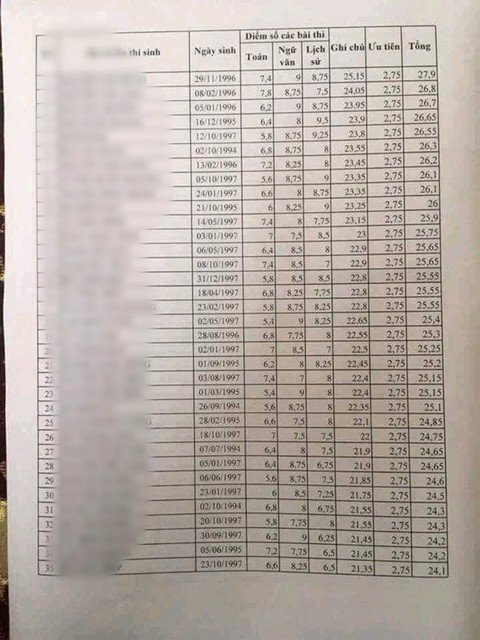 Điểm số các bài thi
thí sinh Ngày sinh Toán Ngữ văn Lịch sử Ghi chú Ưu tiên Tổng
29/11/1996 7,4 9 8,75 25,15 2,75 27,9
08/02/1996 7,8 8,75 7,5 24,05 2,75 26,8
05/01/1996 6,2 9 8,75 23,95 2,75 26,7
16/12/1995 6,4 8 9,5 23,9 2,75 26,65
12/10/1997 5,8 8,75 9,25 23,8 2,75 26,55
02/10/1994 6,8 8,75 8 23,55 2,75 26,3
13/02/1996 7,2 8,25 8 23,45 2,75 26,2
05/10/1997 5,6 8,75 9 23,35 2,75 26,1
24/01/1997 6,6 8 8,75 23,35 2,75 26,1
21/10/1995 6 8,25 9 23,25 2,75 26
14/05/1997 7,4 8 7,75 23,15 2,75 25,9
03/01/1997 7 7,5 8,5 23 2,75 25,75
06/05/1997 6,4 8,5 8 22,9 2,75 25,65
08/10/1997 7,4 8,5 7 22,9 2,75 25,65
31/12/1997 5,8 8,5 8,5 22,8 2,75 25,55
18/04/1997 6,8 8,25 7,75 22,8 2,75 25,55
23/02/1997 5,8 8,75 8,25 22,8 2,75 25,55
02/05/1997 5,4 9 8,25 22,65 2,75 25,4
28/08/1996 6,8 7,75 8 22,55 2,75 25,3
02/01/1997 7 8,5 7 22,5 2,75 25,25
21 01/09/1995 6,2 8 8,25 22,45 2,75 25,2
22 03/08/1997 7,4 7 8 22,4 2,75 25,15
23 01/03/1995 5,4 9 8 22,4 2,75 25,15
24 26/09/1994 5,6 8,75 8 22,35 2,75 25,1
25 28/02/1995 6,6 7,5 8 22,1 2,75 24,85
26 18/10/1997 7 7,5 7,5 22 2,75 24,75
27 07/07/1994 6,4 8 7,5 21,9 2,75 24,65
28 05/01/1997 6,4 8,75 6,75 21,9 2,75 24,65
29 06/06/1997 5,6 8,75 7,5 21,85 2,75 24,6
30 23/01/1997 6 8,5 7,25 21,75 2,75 24,5
31 02/10/1994 6,8 8 6,75 21,55 2,75 24,3
32 20/10/1997 5,8 7,75 8 21,55 2,75 24,3
30/09/1997 6,2 9 6,25 21,45 2,75 24,2
05/06/1995 7,2 7,75 6,5 21,45 2,75 24,2
35 23/10/1997 6,6 8,25 6,5 21,35 2,75 24,1